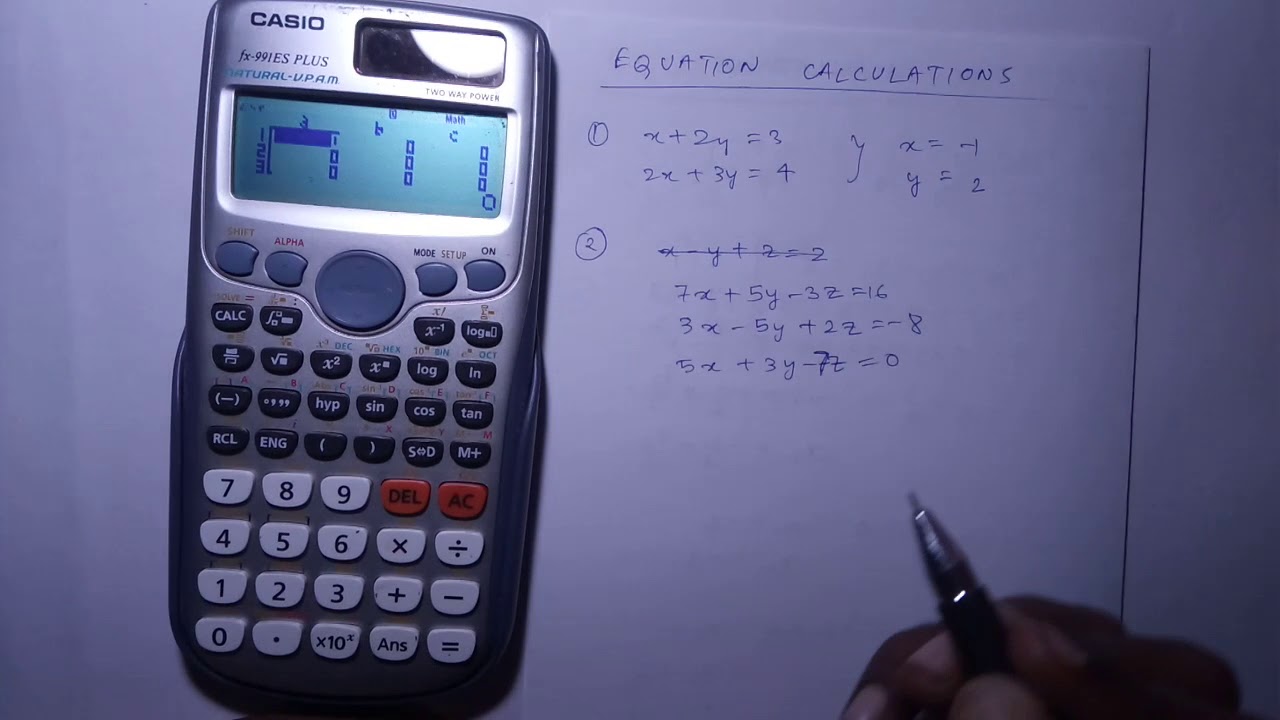 CASIO
fx-991ES PLUS
NATURAL-V.P.A.M.
TWO WAY POWER
Math
a b c
1
2
3
0 0 0
0 0 0
0 0 0
0
SHIFT
ALPHA
MODE SETUP ON
SOLVE = :
x!
CALC x⁻¹ log
x³ DEC HEX 10 BIN e OCT
√ x² x log ln
A B Abs C sin⁻¹ D cos⁻¹ E tan⁻¹ F
(−) °,,, hyp sin cos tan
X Y M
RCL ENG ( ) S⇔D M+
7 8 9 DEL AC
4 5 6 × ÷
1 2 3 + −
0 . ×10ˣ Ans =
EQUATION CALCULATIONS
① x + 2y = 3 } x = -1
2x + 3y = 4 y = 2
② x - y + z = 2
7x + 5y - 3z = 16
3x - 5y + 2z = -8
5x + 3y - 7z = 0